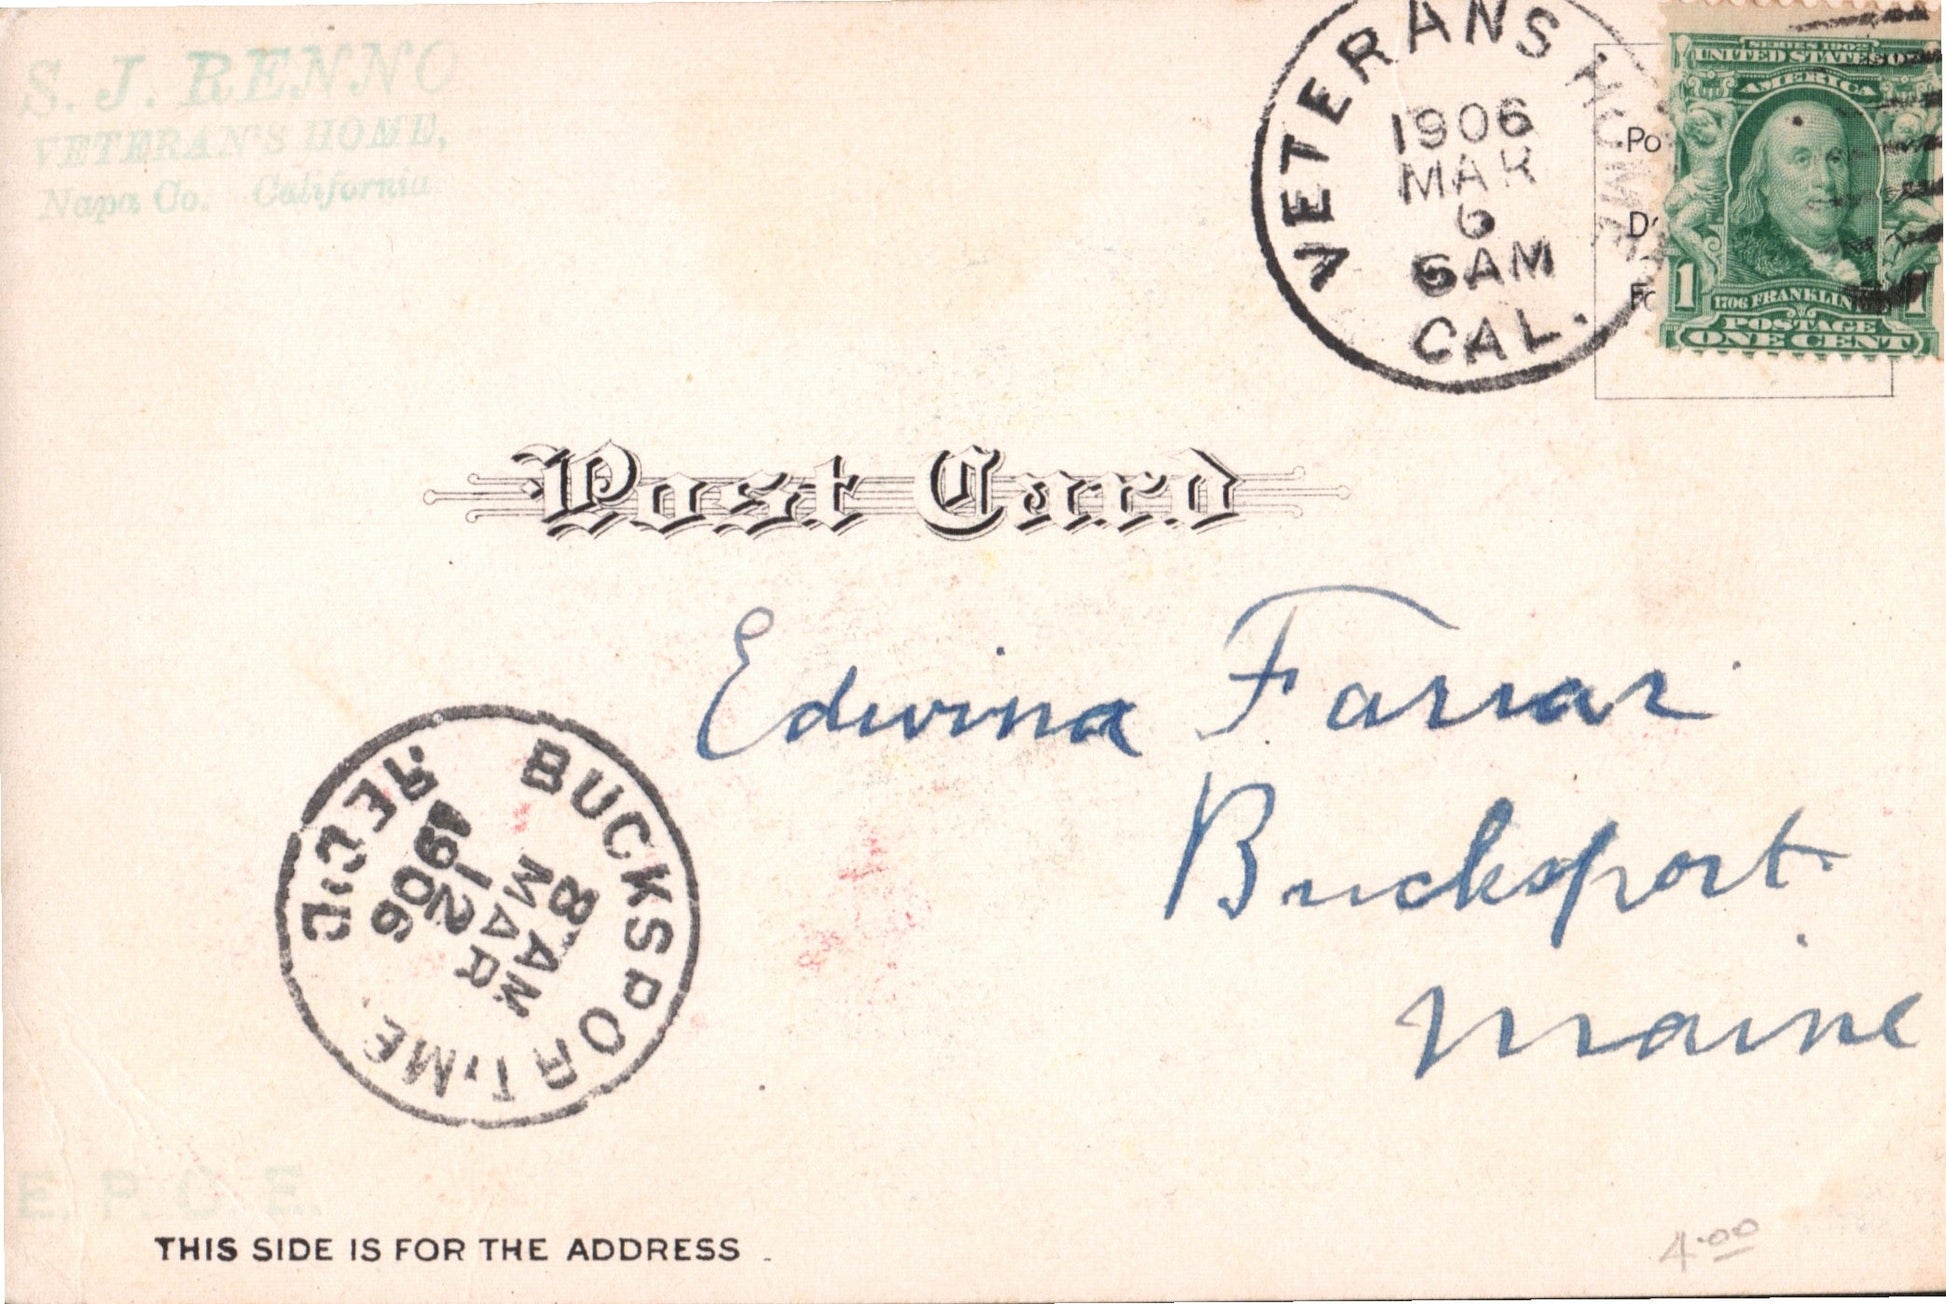 S. J. RENNO
VETERAN'S HOME,
Napa Co. California
VETERANS HOME
1906
MAR
6
6 AM
CAL.
SERIES 1902
UNITED STATES OF
AMERICA
1706 FRANKLIN
1 1
POSTAGE
ONE CENT
Post Card
Edwina Farrar
Bucksport
Maine
BUCKSPORT, ME.
8 AM
MAR
12
1906
REC'D.
E. P. C. E.
THIS SIDE IS FOR THE ADDRESS
4.00